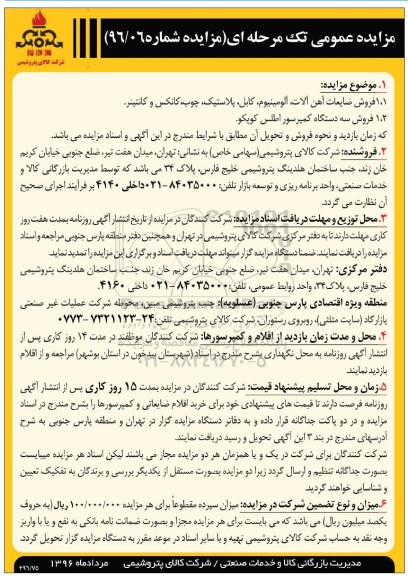 مزایده عمومی تک مرحله ای(مزایده شماره ۹۶/۰۶)
شرکت کالای پتروشیمی
۱. موضوع مزایده:
۱،۱فروش ضایعات آهن آلات، آلومینیوم، کابل، پلاستیک، چوب،کانکس و کانتینر.
۱.۲ فروش سه دستگاه کمپرسور اطلس کوپکو.
که زمان بازدید و نحوه فروش و تحویل آن مطابق با شرایط مندرج در این آگهی و اسناد مزایده می باشد.
۲. فروشنده: شرکت کالای پتروشیمی(سهامی خاص) به نشانی: تهران، میدان هفت تیر، ضلع جنوبی خیابان کریم
خان زند، جنب ساختمان هلدینگ پتروشیمی خلیج فارس، پلاک ۳۴ می باشد که توسط مدیریت بازرگانی کالا و
خدمات صنعتی، واحد برنامه ریزی و توسعه بازار تلفن: ۸۴۰۳۵۰۰۰-۰۲۱داخلی ۴۱۴۰ بر فرآیند اجرای صحیح
آن نظارت می گردد.
۳. محل توزیع و مهلت دریافت اسناد مزایده: شرکت کنندگان در مزایده از تاریخ انتشار آگهی روزنامه بمدت هفت روز
کاری مهلت دارند تا به دفتر مرکزی شرکت کالای پتروشیمی در تهران و همچنین دفتر منطقه پارس جنوبی مراجعه و اسناد
مزایده را دریافت نمایند. ضمنا دستگاه مزایده گزار میتواند مهلت دریافت اسناد و برگزاری این مزایده را تمدید نماید.
دفتر مرکزی: تهران، میدان هفت تیر، ضلع جنوبی خیابان کریم خان زند، جنب ساختمان هلدینگ پتروشیمی
خلیج فارس، پلاک۳۴، واحد روابط عمومی، تلفن: ۸۴۰۳۵۰۰۰-۰۲۱ داخلی ۴۱۶۰.
منطقه ویژه اقتصادی پارس جنوبی (عسلویه): جنب پتروشیمی مبین، محوطه شرکت عملیات غیر صنعتی
پازارگاد (سایت مثلثی)، روبروی رستوران، شرکت کالای پتروشیمی تلفن:۲۴-۷۳۲۱۱۲۳-۰۷۷۳
۴. محل و مدت زمان بازدید از اقلام و کمپرسورها: شرکت کنندگان موظفند در مدت ۱۴ روز کاری پس از
انتشار آگهی روزنامه به محل نگهداری بشرح مندرج در اسناد (شهرستان بیدخون در استان بوشهر) مراجعه و از اقلام
بازدید نمایند.
۵.زمان و محل تسلیم پیشنهاد قیمت: شرکت کنندگان در مزایده بمدت ۱۵ روز کاری پس از انتشار آگهی
روزنامه فرصت دارند تا قیمت های پیشنهادی خود برای خرید اقلام ضایعاتی و کمپرسورها را بشرح مندرج در اسناد
مزایده و در دو پاکت جداگانه قرار داده و به دفاتر دستگاه مزایده گزار در تهران و منطقه پارس جنوبی به شرح
آدرسهای مندرج در بند ۳ این آگهی تحویل و رسید دریافت نمایند.
شرکت کنندگان برای شرکت در یک و یا همزمان هر دو مزایده مجاز می باشند لیکن اسناد هر مزایده میبایست
بصورت جداگانه تنظیم و ارسال گردد زیرا دو مزایده بصورت مستقل از یکدیگر بررسی و برندگان به تفکیک تعیین
و شناسایی خواهند گردید.
۶.میزان و نوع تضمین شرکت در مزایده: میزان سپرده مقطوعاً برای هر مزایده ۱۰۰/۰۰۰/۰۰۰ ریال (به حروف
یکصد میلیون ریال) می باشد که می بایست برای هر مزایده مجزا و بصورت ضمانت نامه بانکی به نفع و یا با واریز
وجه نقد به حساب شرکت کالای پتروشیمی تهیه و با سایر اسناد در موعد مقرر به دستگاه مزایده گزار تحویل گردد.
مدیریت بازرگانی کالا و خدمات صنعتی / شرکت کالای پتروشیمی
مردادماه ۱۳۹۶
۲۹۶/۷۵